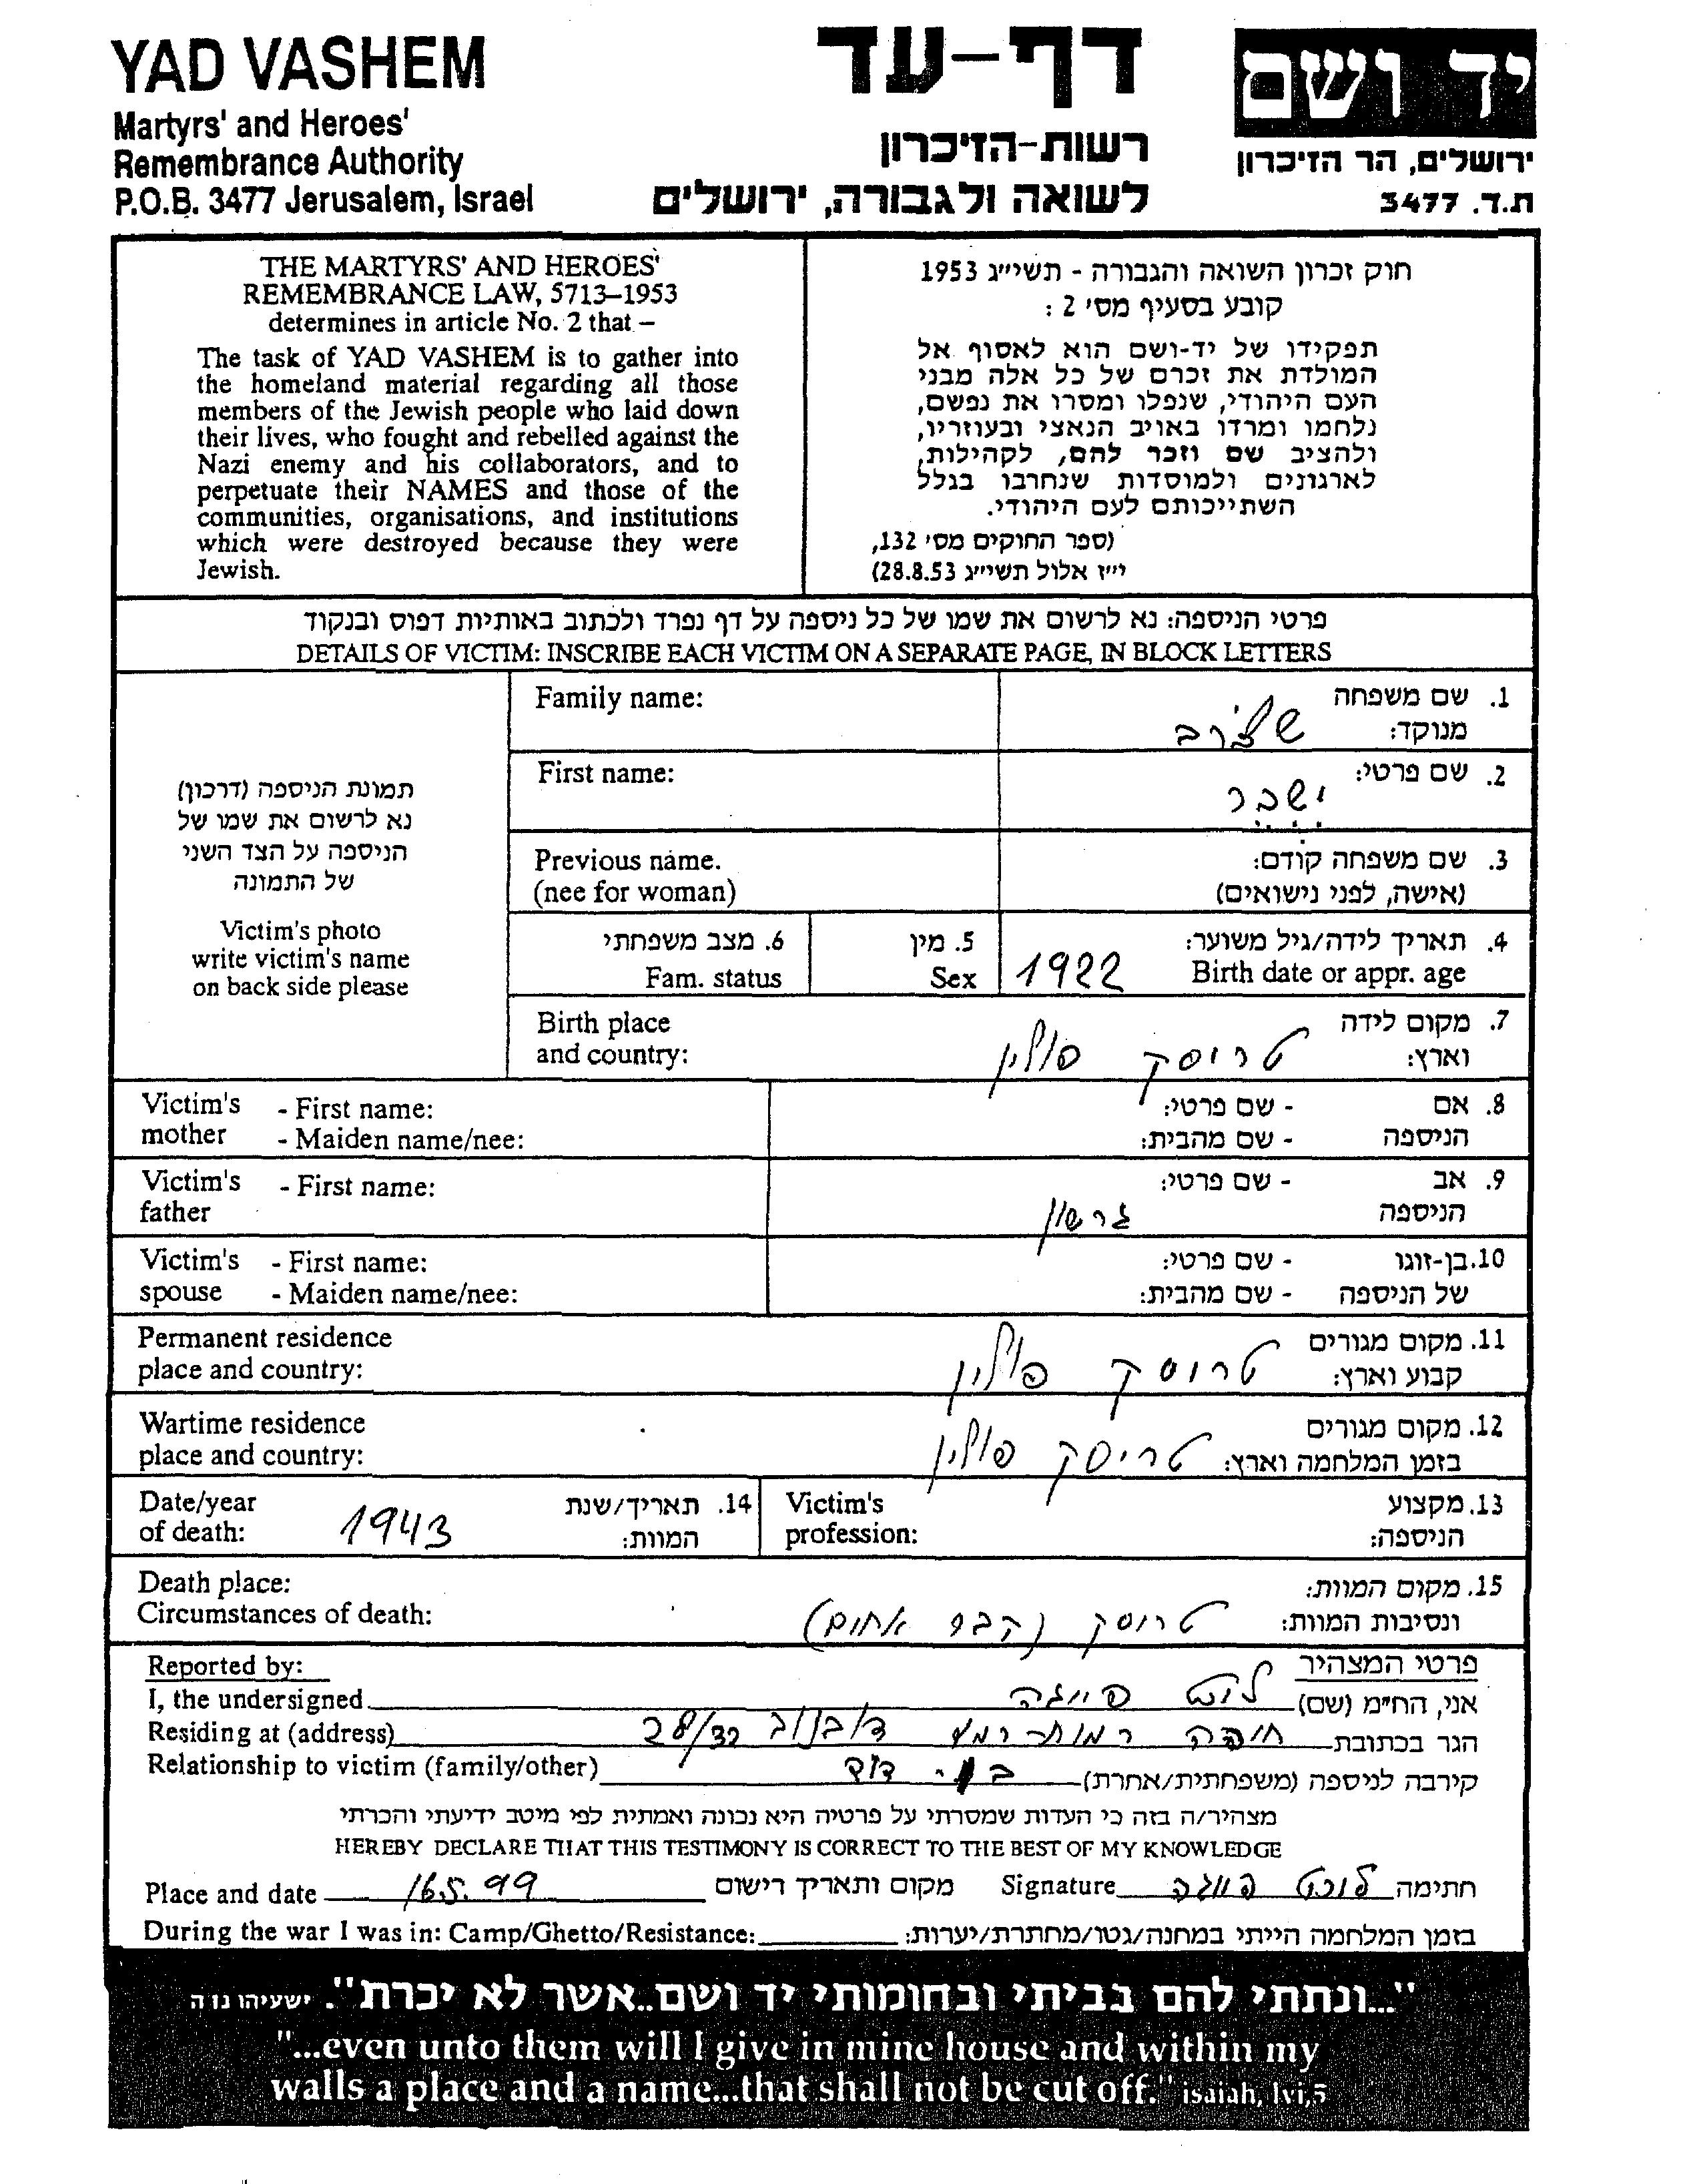 YAD VASHEM
Martyrs' and Heroes'
Remembrance Authority
P.O.B. 3477 Jerusalem, Israel
דף-עד
רשות-הזיכרון
לשואה ולגבורה, ירושלים
יד ושם
ירושלים, הר הזיכרון
ת.ד. 3477
THE MARTYRS' AND HEROES'
REMEMBRANCE LAW, 5713–1953
determines in article No. 2 that –
The task of YAD VASHEM is to gather into
the homeland material regarding all those
members of the Jewish people who laid down
their lives, who fought and rebelled against the
Nazi enemy and his collaborators, and to
perpetuate their NAMES and those of the
communities, organisations, and institutions
which were destroyed because they were
Jewish.
חוק זכרון השואה והגבורה - תשי״ג 1953
קובע בסעיף מס׳ 2 :
תפקידו של יד-ושם הוא לאסוף אל
המולדת את זכרם של כל אלה מבני
העם היהודי, שנפלו ומסרו את נפשם,
נלחמו ומרדו באויב הנאצי ובעוזריו,
ולהציב שם וזכר להם, לקהילות,
לארגונים ולמוסדות שנחרבו בגלל
השתייכותם לעם היהודי.
(ספר החוקים מס׳ 132,
י״ז אלול תשי״ג 28.8.53)
פרטי הניספה: נא לרשום את שמו של כל ניספה על דף נפרד ולכתוב באותיות דפוס ובנקוד
DETAILS OF VICTIM: INSCRIBE EACH VICTIM ON A SEPARATE PAGE, IN BLOCK LETTERS
תמונת הניספה (דרכון)
נא לרשום את שמו של
הניספה על הצד השני
של התמונה
Victim's photo
write victim's name
on back side please
Family name: 1. שם משפחה
מנוקד:
First name: 2. שם פרטי:
ישכר
Previous name. 3. שם משפחה קודם:
(nee for woman) (אישה, לפני נישואים)
6. מצב משפחתי 5. מין 4. תאריך לידה/גיל משוער:
Fam. status Sex 1922 Birth date or appr. age
Birth place 7. מקום לידה
and country: וארץ: טרוסק פולין
Victim's - First name: - שם פרטי: 8. אם
mother - Maiden name/nee: - שם מהבית: הניספה
Victim's - First name: - שם פרטי: 9. אב
father גרשון הניספה
Victim's - First name: - שם פרטי: 10. בן-זוגו
spouse - Maiden name/nee: - שם מהבית: של הניספה
Permanent residence 11. מקום מגורים
place and country: קבוע וארץ: טרוסק פולין
Wartime residence 12. מקום מגורים
place and country: בזמן המלחמה וארץ: טריסק פולין
Date/year 14. תאריך/שנת Victim's 13. מקצוע
of death: 1943 המוות: profession: הניספה:
Death place: 15. מקום המוות:
Circumstances of death: ונסיבות המוות: טרוסק (קבר אחים)
Reported by: פרטי המצהיר
I, the undersigned אני, החי״מ (שם)
Residing at (address) הגר בכתובת חיפה רמות רמז 28/32
Relationship to victim (family/other) קירבה לניספה (משפחתית/אחרת) דוד
מצהיר/ה בזה כי העדות שמסרתי על פרטיה היא נכונה ואמתית לפי מיטב ידיעתי והכרתי
HEREBY DECLARE THAT THIS TESTIMONY IS CORRECT TO THE BEST OF MY KNOWLEDGE
Place and date 16.5.99 מקום ותאריך רישום Signature חתימה
During the war I was in: Camp/Ghetto/Resistance: בזמן המלחמה הייתי במחנה/גטו/מחתרת/יערות:
"...ונתתי להם בביתי ובחומותי יד ושם..אשר לא יכרת". ישעיהו נו ה
"...even unto them will I give in mine house and within my
walls a place and a name...that shall not be cut off." isaiah, lvi,5